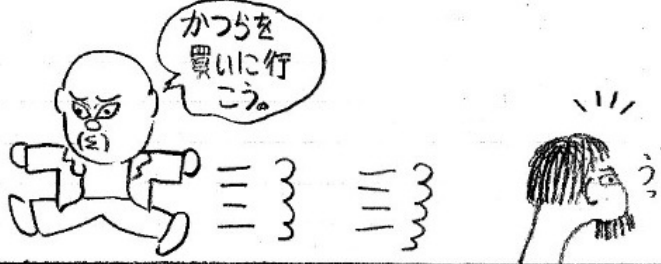 かつらを
買いに行
こう。
うっ